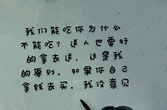 我们能吃你为什么
不能吃？送人也要好
的拿去送，这是我
的原则，如果你自己
拿钱去买，我没意见